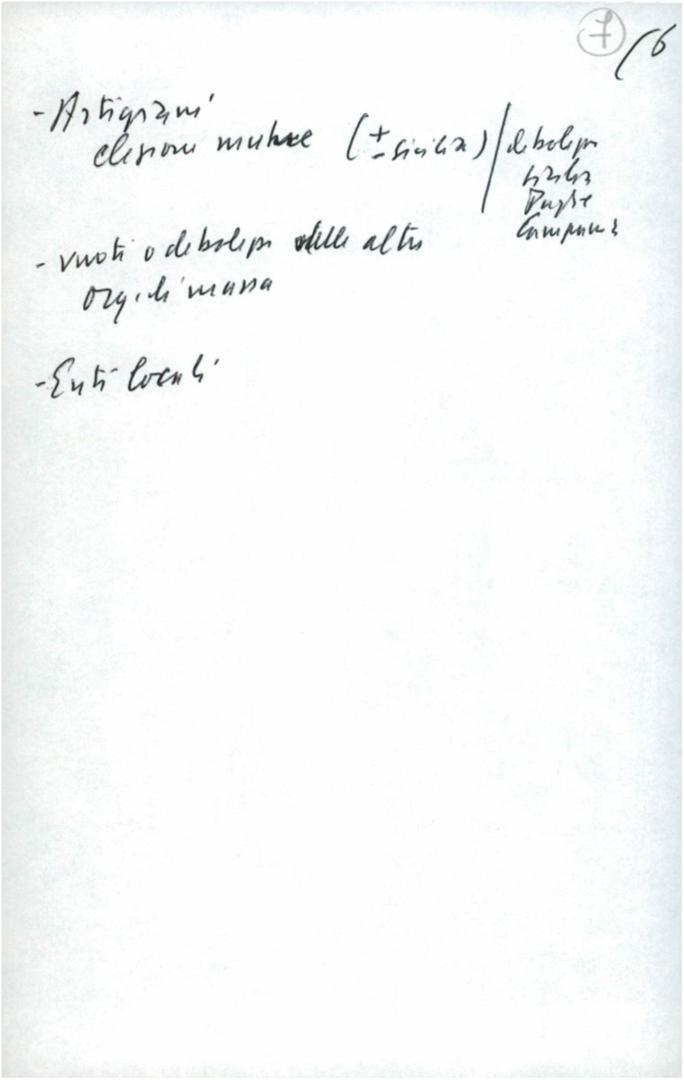 7
(6
- Artigiani
elezioni mutue (± Sicilia) / debolezze
Sicilia
Puglie
Campania
- vuoti o debolezze delle altre
org. di massa
- Enti locali